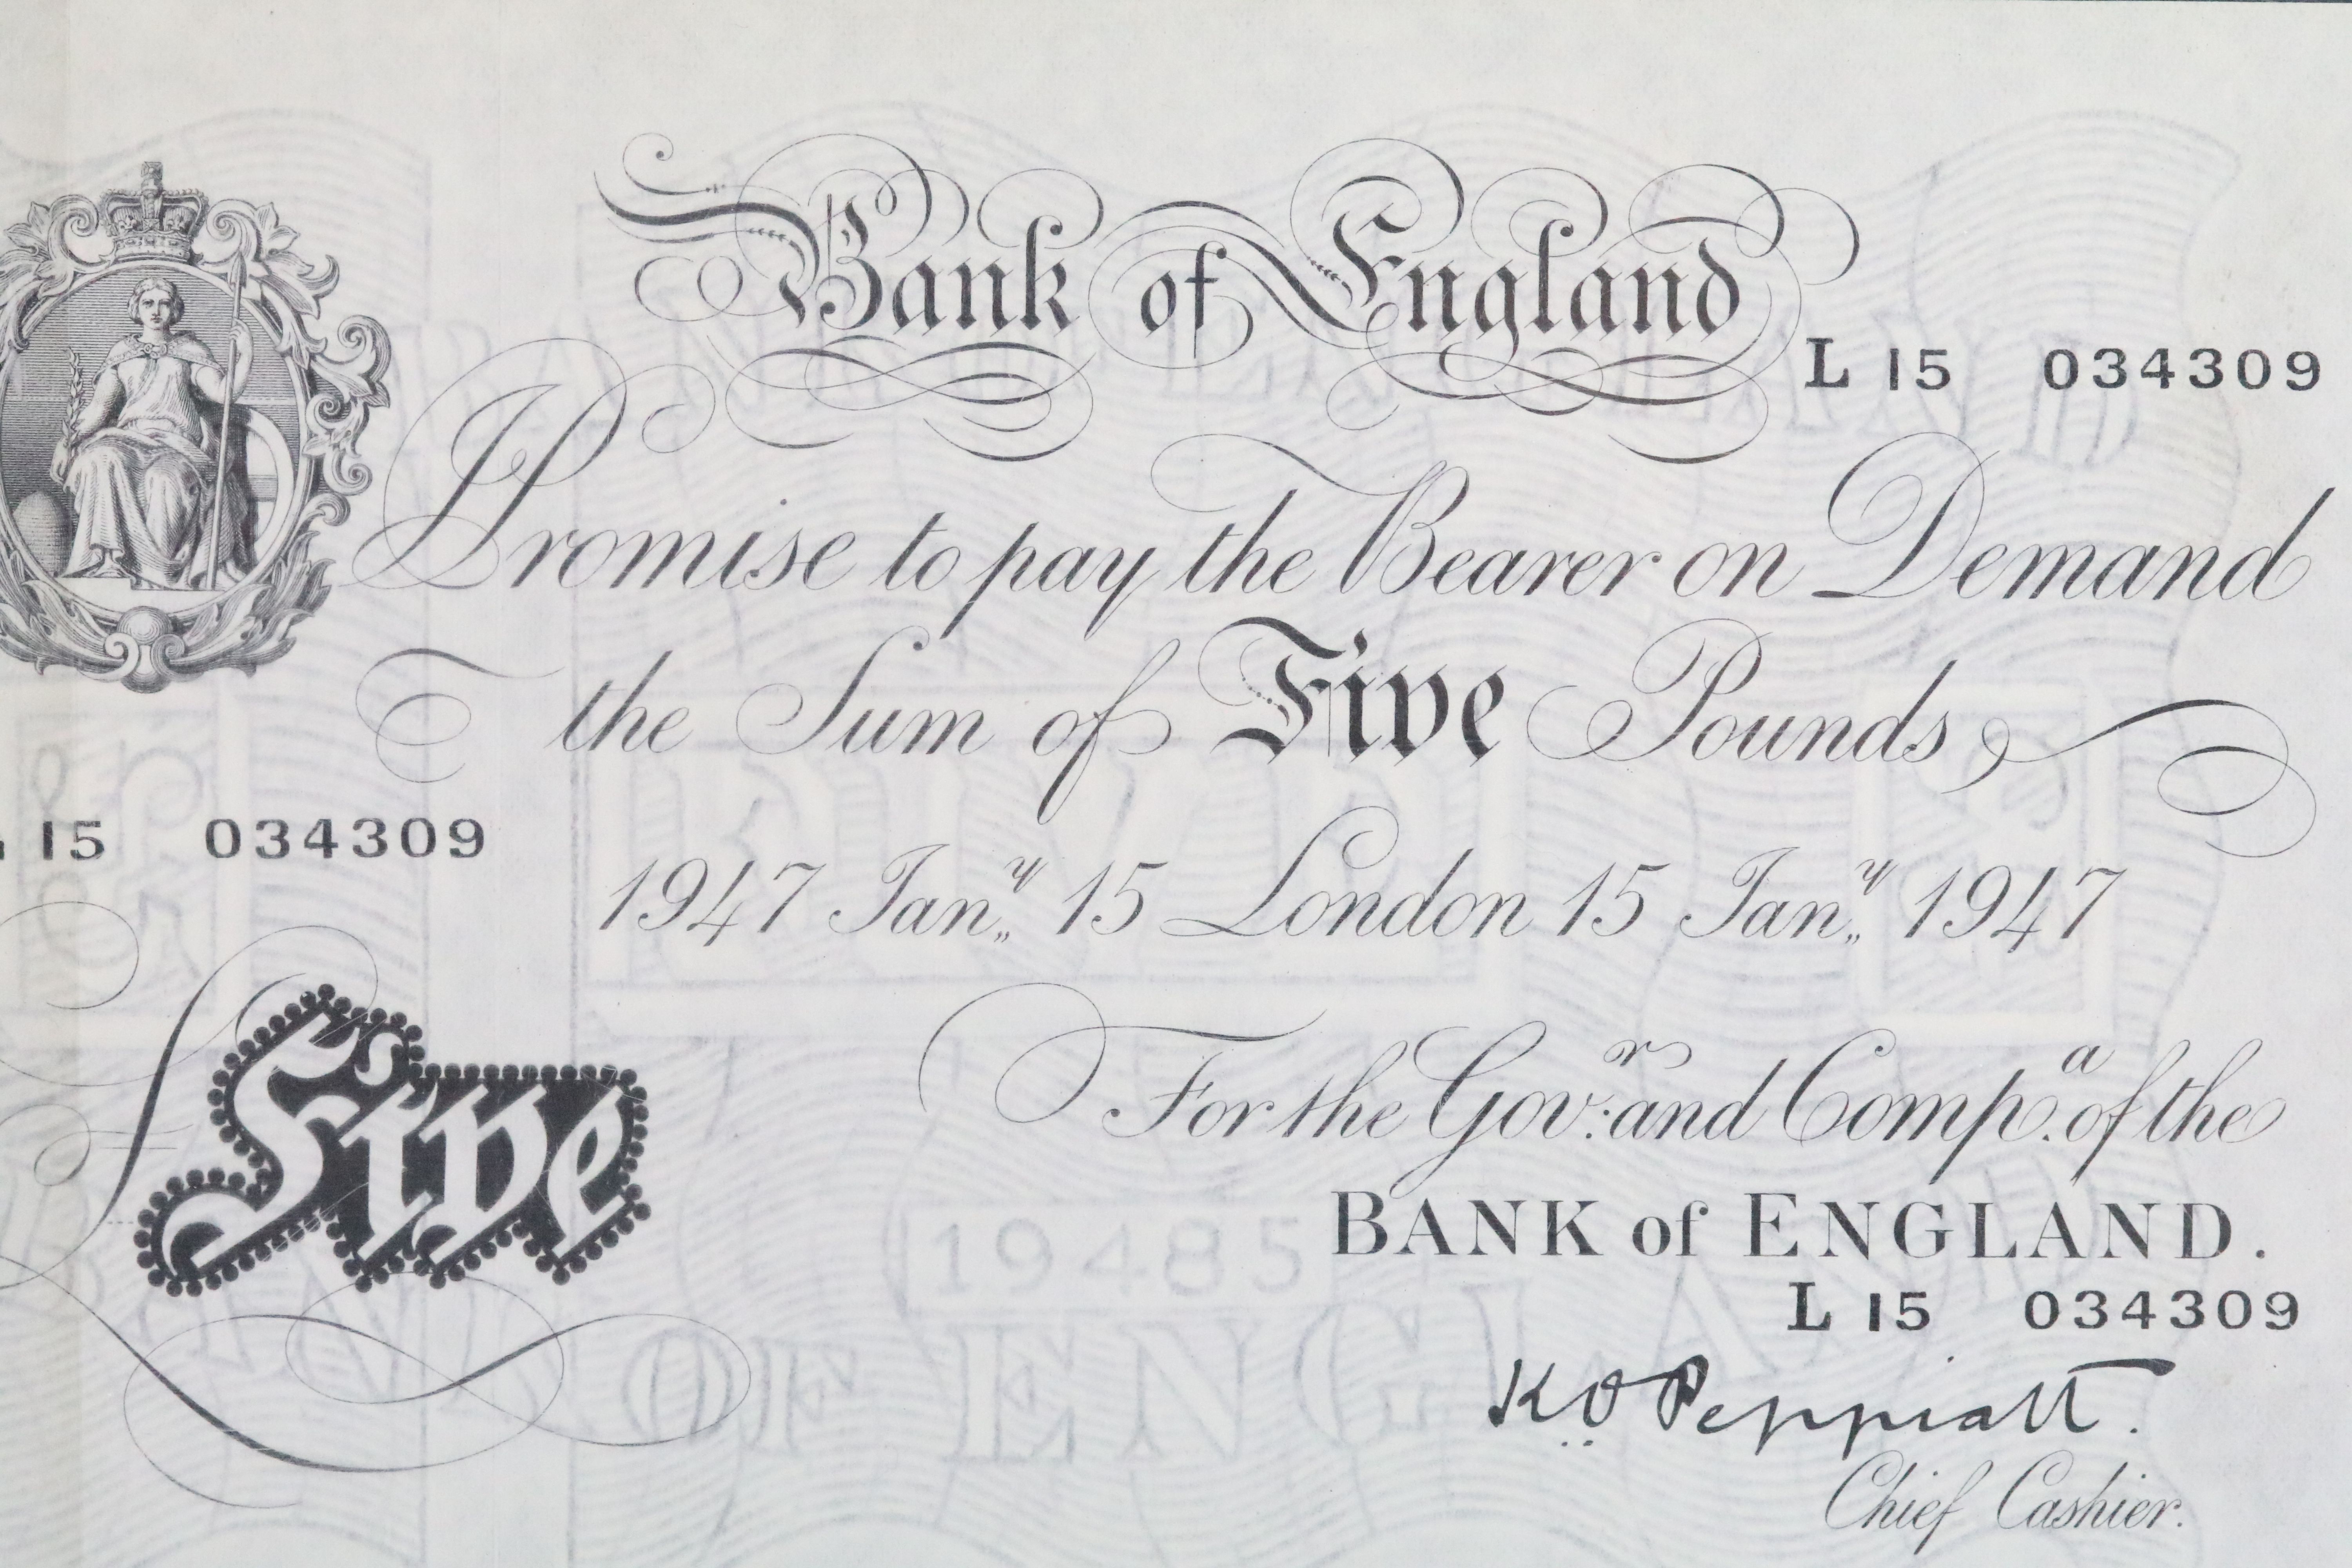 Bank of England
L 15 034309
I Promise to pay the Bearer on Demand
the Sum of Five Pounds
15 034309
1947 Jany 15 London 15 Jany 1947
Five
For the Govr: and Compa. of the
BANK of ENGLAND.
19485
OF ENGLAND
L 15 034309
K O Peppiatt.
Chief Cashier.